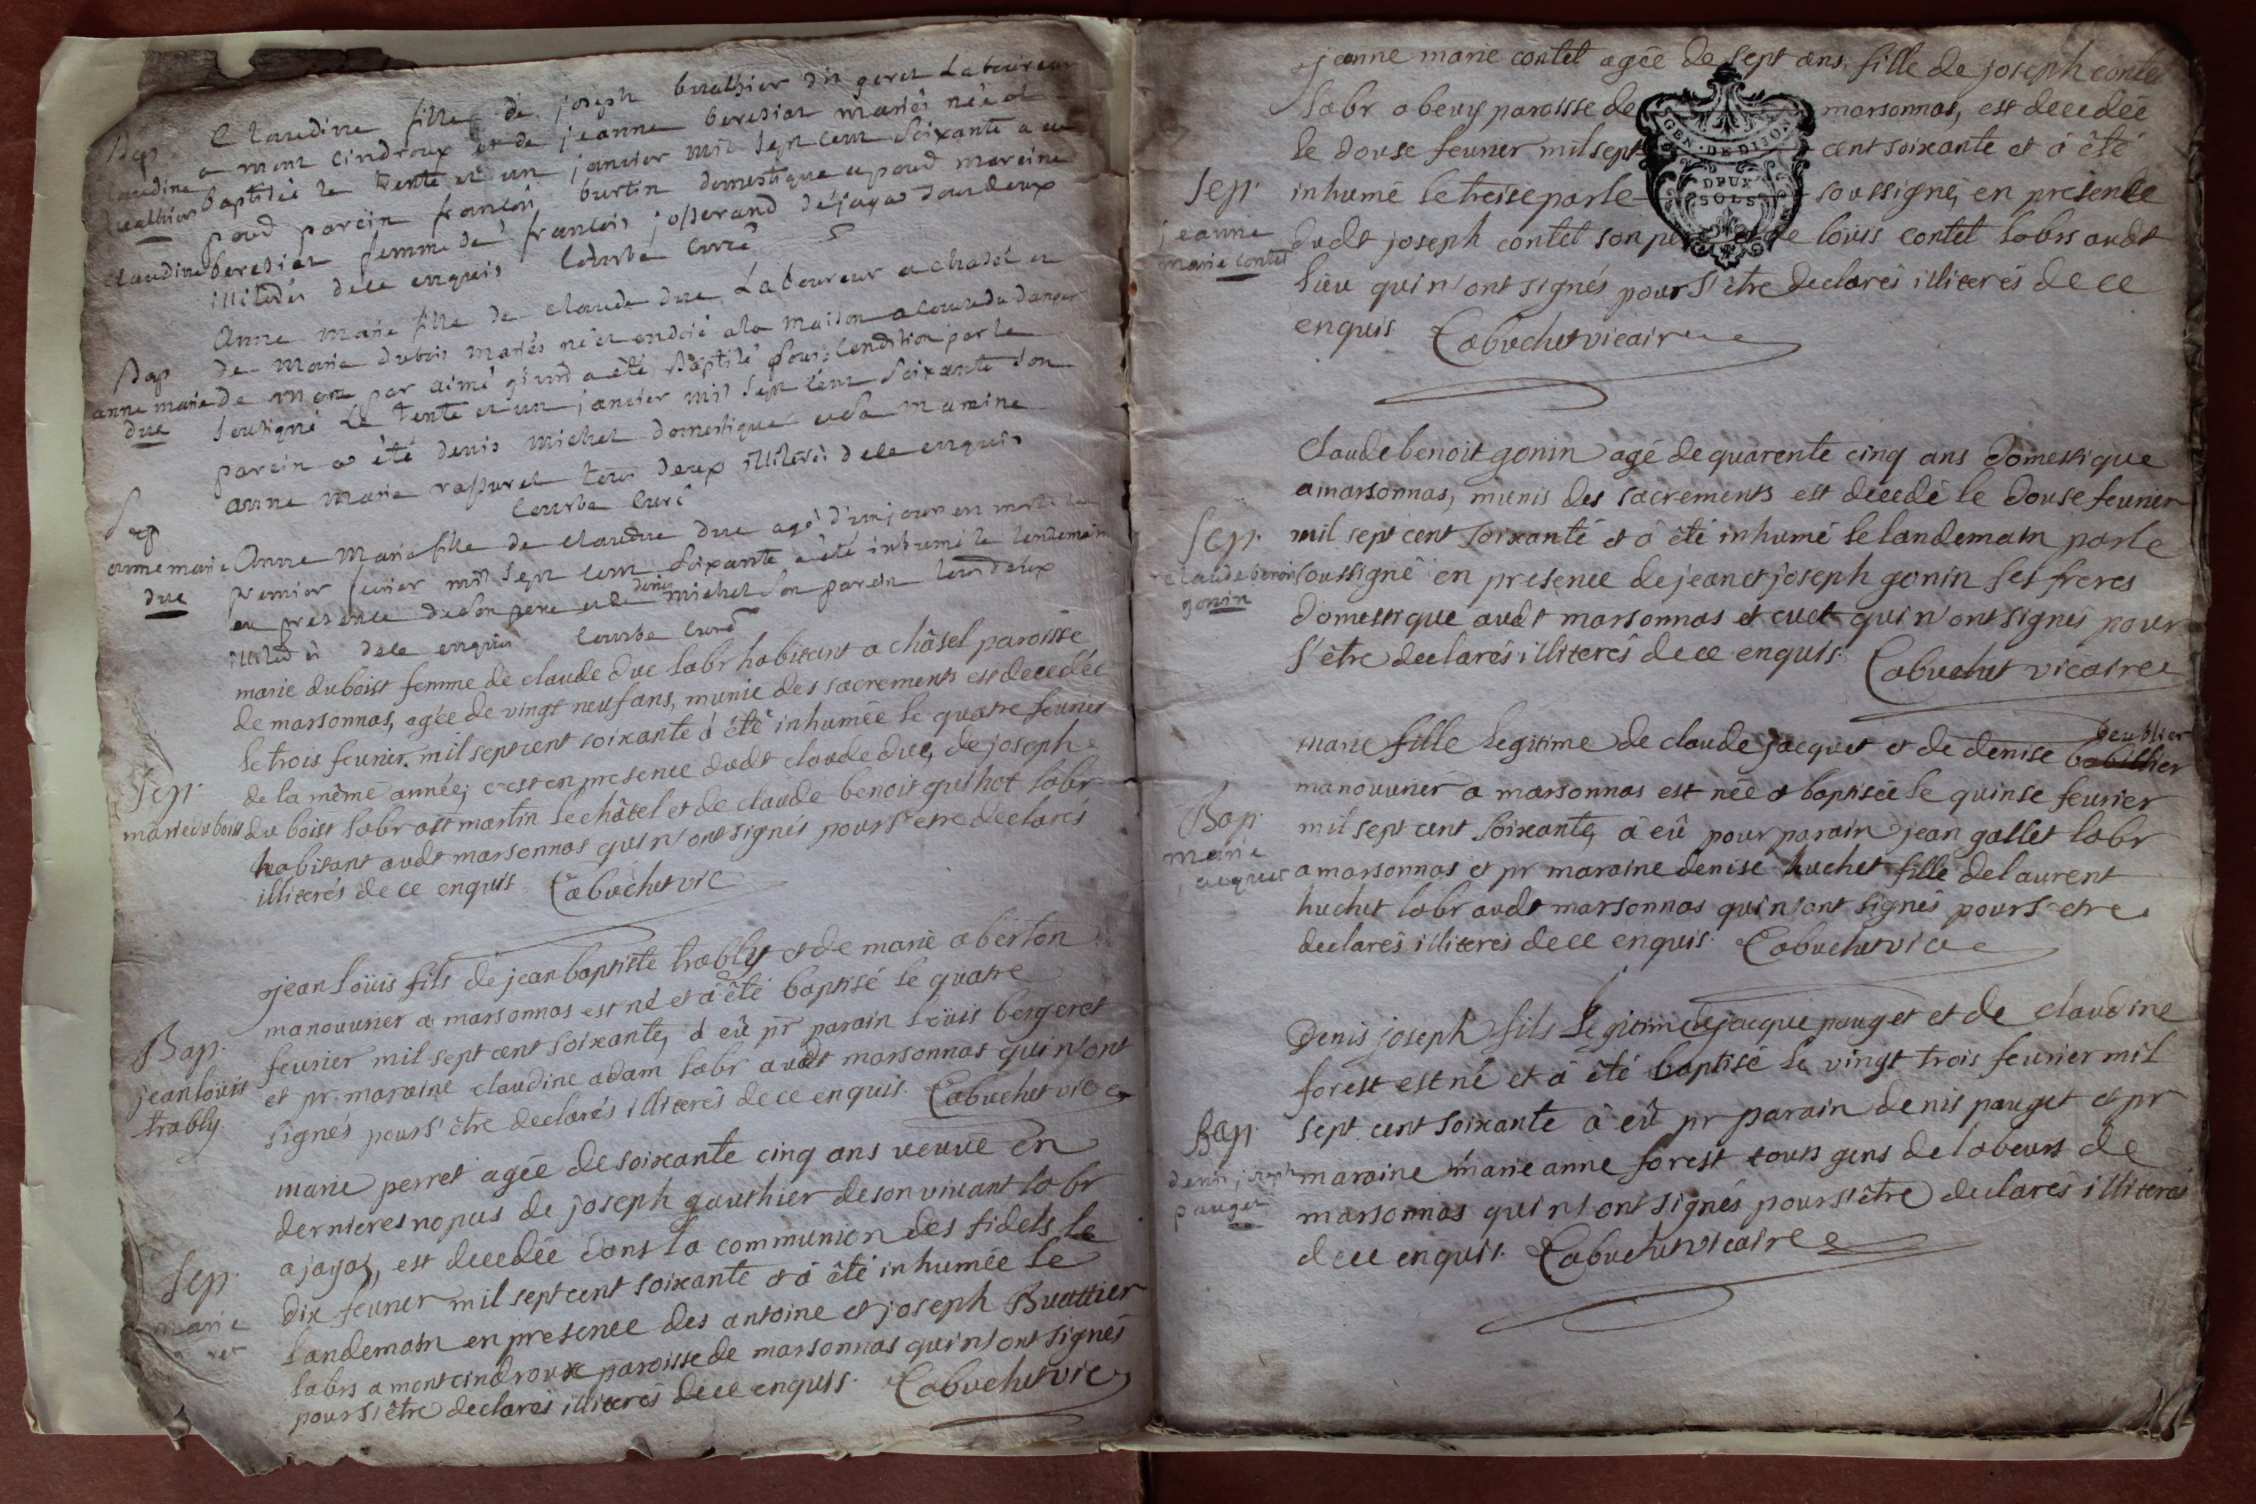 Bap
claudine
buathier
Claudine fille de joseph buathier dit geret Laboureur
a mont cindroux et de jeanne beresiat mariés née et
baptisée le trente et un janvier mil sept cent soixante a eu
pour parein francois burtin domestique et pour mareine
claudine beresiat femme de francois josserand de jayat tous deux
illiterés de ce enquis courbe curé
Bap
anne marie
duc
Anne marie fille de claude duc Laboureur a chatel et
de marie dubois mariés né et ondoié a la maison a cause du danger
de mort par aimé a été Baptisé sous condition par le
soussigné Le trente et un janvier mil sept cent soixante son
parein a été denis michet domestique et sa mareine
anne marie tous deux illiterés de ce enquis
courbe curé
Sep
anne marie
duc
Anne marie fille de claude duc agé d'un jour en morte le
premier fevrier mil sept cent soixante a été inhumé le lendemain
en presence de son pere et de denis michet son parein tous deux
illiterés de ce enquis courbe curé
Sep.
marie du boist
marie duboist femme de claude duc labr habitant a châtel paroisse
de marsonnas, agée de vingt neuf ans, munie des sacrements est decedée
le trois feurier mil sept cent soixante á été inhumée le quatre feurier
de la même année, c'est en presence dudt claude duc, de joseph
du boist labr a st martin le châtel et de claude benoit guihot labr
habitant audt marsonnas qui n'ont signés pour s'etre declarés
illiterés de ce enquis Cabuchet vic
Bap.
jean loüis
trably
jean loüis fils de jean baptiste trably et de marie aberton
manouurier a marsonnas est né et á été baptisé le quatre
feurier mil sept cent soixante, á eû pr parain loüis bergeret
et pr. maraine claudine adam labr audt marsonnas qui n'ont
signés pour s'être declarés illiterés de ce enquis. Cabuchet vic
Sep.
marie
marie perret agée de soixante cinq ans veuve en
dernieres nopces de joseph gauthier de son vivant labr
a jayat, est decedée dans la communion des fidels le
dix feurier mil sept cent soixante et á été inhumée le
landemain en presence des antoine et joseph Buattier
labrs a montcindroux paroisse de marsonnas qui n'ont signés
pour s'être declarés illiterés de ce enquis. Cabuchet vic
jeanne marie contet agée de sept ans, fille de joseph contet
labr a beuy paroisse de marsonnas, est decedée
le douse feurier mil sept cent soixante et á été
GEN. DE DIJON
DEUX
SOLS
Sep.
jeanne
marie contet
inhumé le treise par le soussigné, en presence
dudt joseph contet son pere et de loüis contet labrs audt
lieu qui n'ont signés pour s'être declarés illiterés de ce
enquis Cabuchet vicaire
Sep.
claude benoit
gonin
Claude benoit gonin agé de quarente cinq ans domestique
a marsonnas, munis des sacrements est decedé le douse feurier
mil sept cent soixante et á été inhumé le landemain par le
soussigné en presence de jean et joseph gonin ses freres
domestique audt marsonnas et cuet qui n'ont signés pour
s'être declarés illiterés de ce enquis. Cabuchet vicaire
Bap.
marie
jacquet
marie fille legitime de claude jacquet et de denise
manouurier a marsonnas est née et baptisée le quinse feurier
mil sept cent soixante, á eû pour parain jean gallet labr
a marsonnas et pr maraine denise huchet fille de laurent
huchet labr audt marsonnas qui n'ont signés pour s'etre
declarés illiterés de ce enquis. Cabuchet vic
Bap.
denis joseph
pauget
Denis joseph fils legitime de jacque pauget et de claudine
forest est né et á été baptisé le vingt trois feurier mil
sept cent soixante á eû pr parain denis pauget et pr
maraine marie anne forest touts gens de labeurs de
marsonnas qui n'ont signés pour s'être declarés illiterés
de ce enquis. Cabuchet vicaire